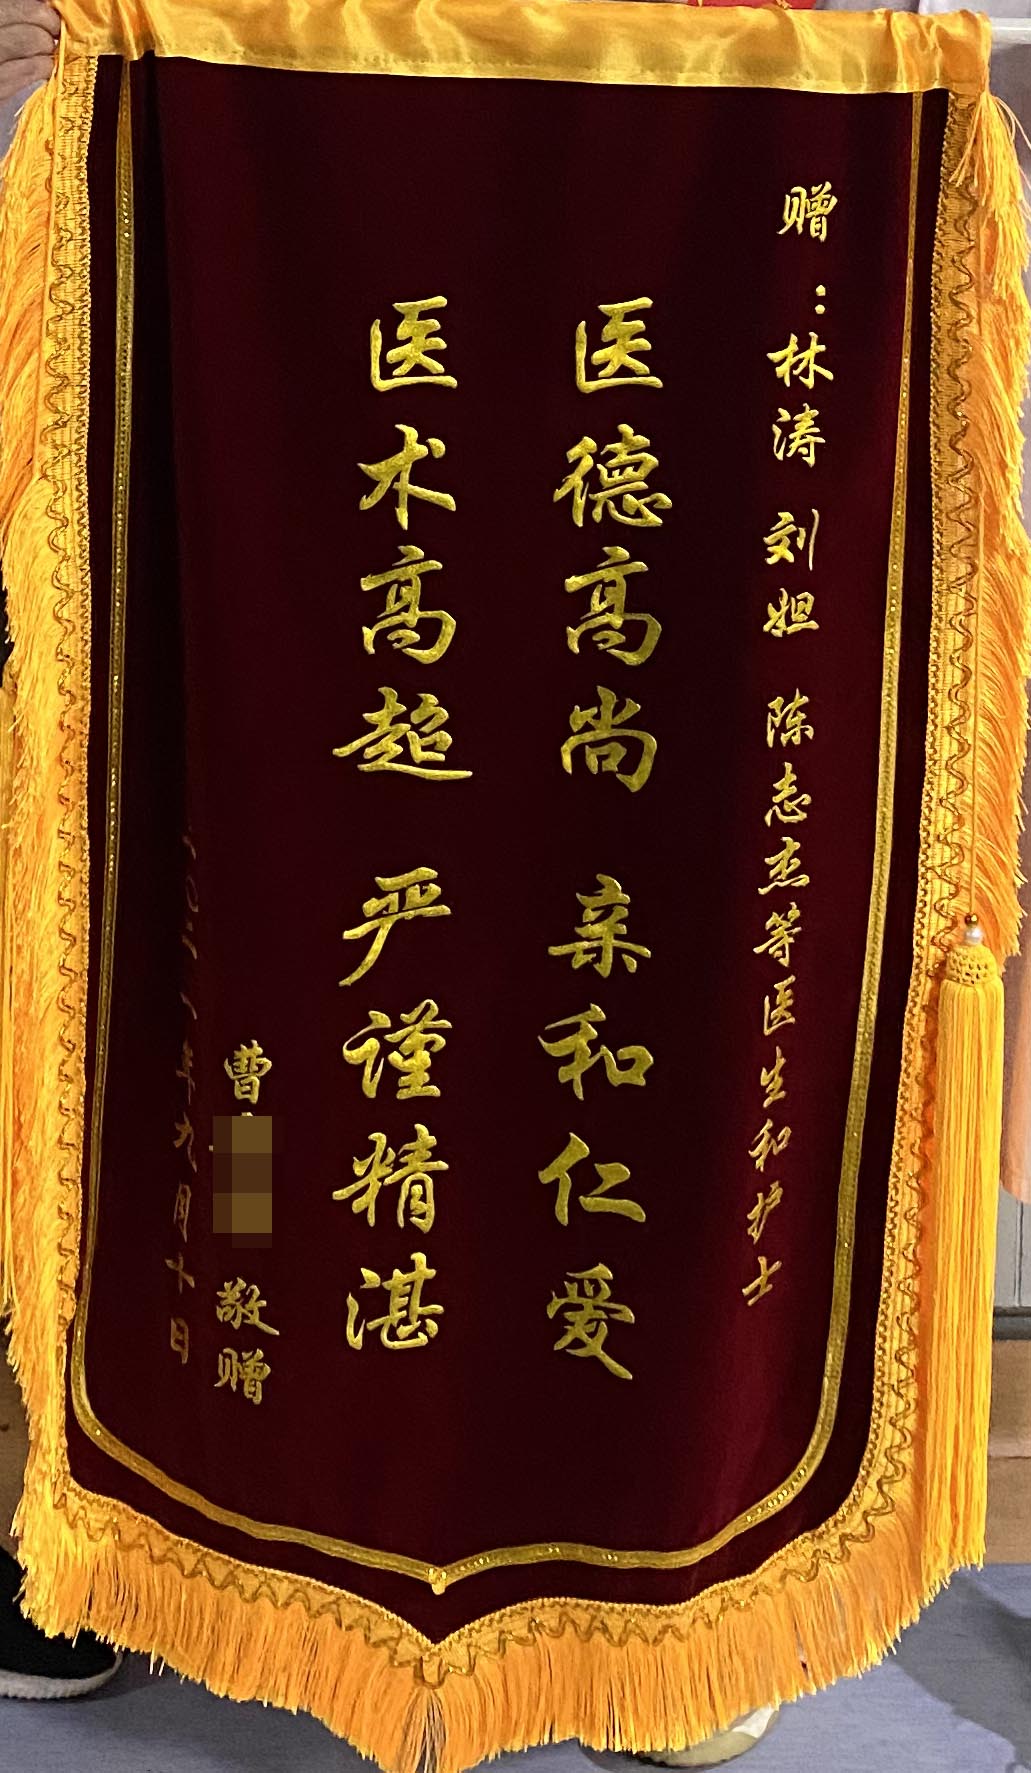 赠：林涛 刘妲 陈志杰等医生和护士
医德高尚 亲和仁爱
医术高超 严谨精湛
曹 敬赠
二〇二一年九月十日